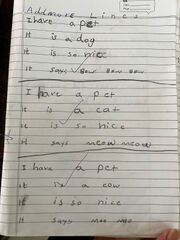 Add more Lines
I have a pet
It is a dog
It is so nice
It says Bow Bow Bow
I have a pet
It is a cat
It is so nice
It says meow meow
I have a pet
It is a cow
It is so nice
It says moo moo